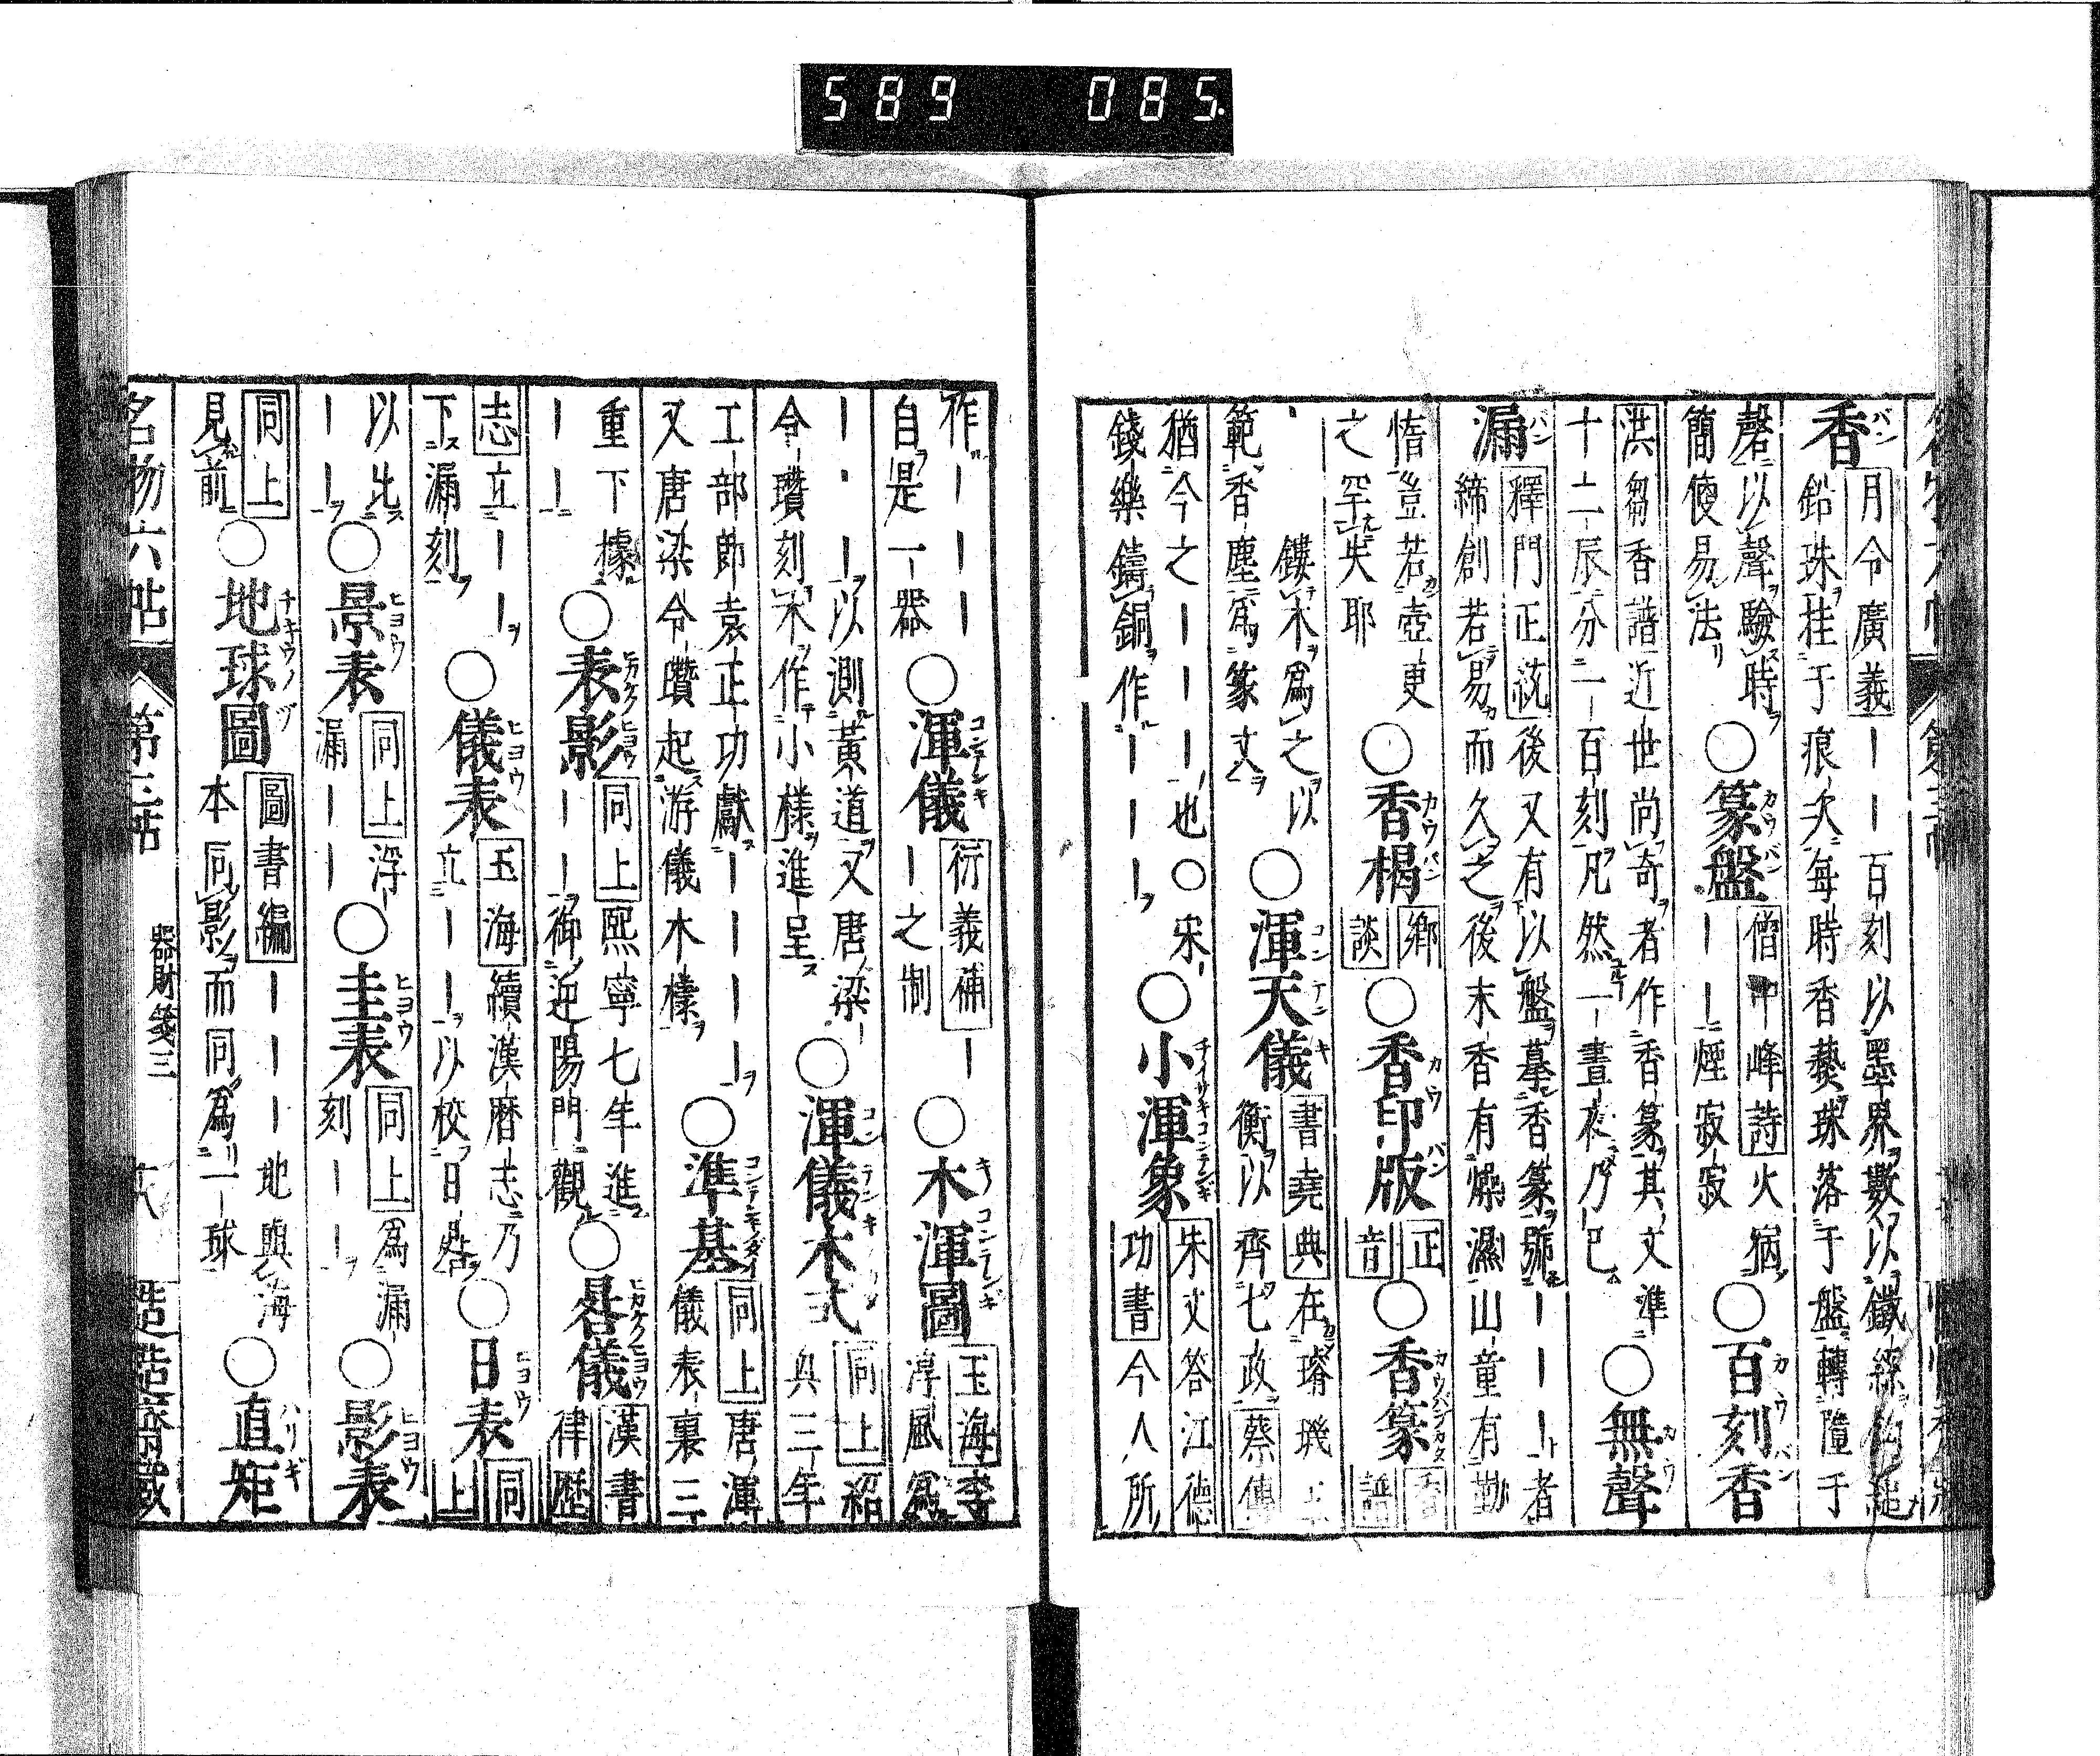 589 085.
香 月令廣義 ｜｜百刻以墨界數以鐵
鉛珠挂于痕次每時香爇珠落于盤轉墮于
磬以聲驗時
簡便易法
○篆盤 僧中峰詩 火
｜｜煙寂寂
○百刻香
洪芻香譜 近世尚奇者作香篆其文準
十二辰分一百刻凡然一晝夜乃已
○無聲
漏 釋門正統 後又有以盤摹香篆號｜｜｜者
締創若易而久之後末香有燥濕山童有勤
惰豈若壺更
之罕失耶
○香楬 鄉談
○香印版 正音
○香篆 香譜
鏤木爲之以
範香塵爲篆文
○渾天儀 書堯典 在璿璣玉
衡以齊七政 蔡傳
猶今之｜｜｜也○宋
錢樂鑄銅作｜｜｜
○小渾象 朱文答江德
功書 今人所
作｜｜｜
自是一器
○渾儀 衍義補 ｜
｜之制
○木渾圖 玉海 李
淳風爲
｜｜以測黃道又唐梁
令瓚刻木作小樣進呈
○渾儀木式 同上 紹
興三年
工部郎袁正功獻｜｜｜｜
又唐梁令瓚起游儀木樣
○準基 同上 唐渾
儀表裏三
重下據
｜｜
○表影 同上 熙寧七年進
｜｜御迎陽門觀
○晷儀 漢書
律歷
志 立｜｜
下漏刻
○儀表 玉海 續漢曆志乃
立｜｜以校日晷
○日表 同
上
以比
｜｜
○景表 同上 浮
漏｜｜
○圭表 同上 爲漏
刻｜｜
○影表
同上
見前
○地球圖 圖書編 ｜｜｜地與海
本同影而同爲一球
○直矩
名物六帖 第三帖 器財箋三